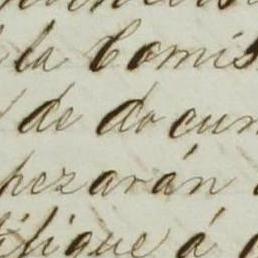 la Comis
de docum
pezarán
lique á